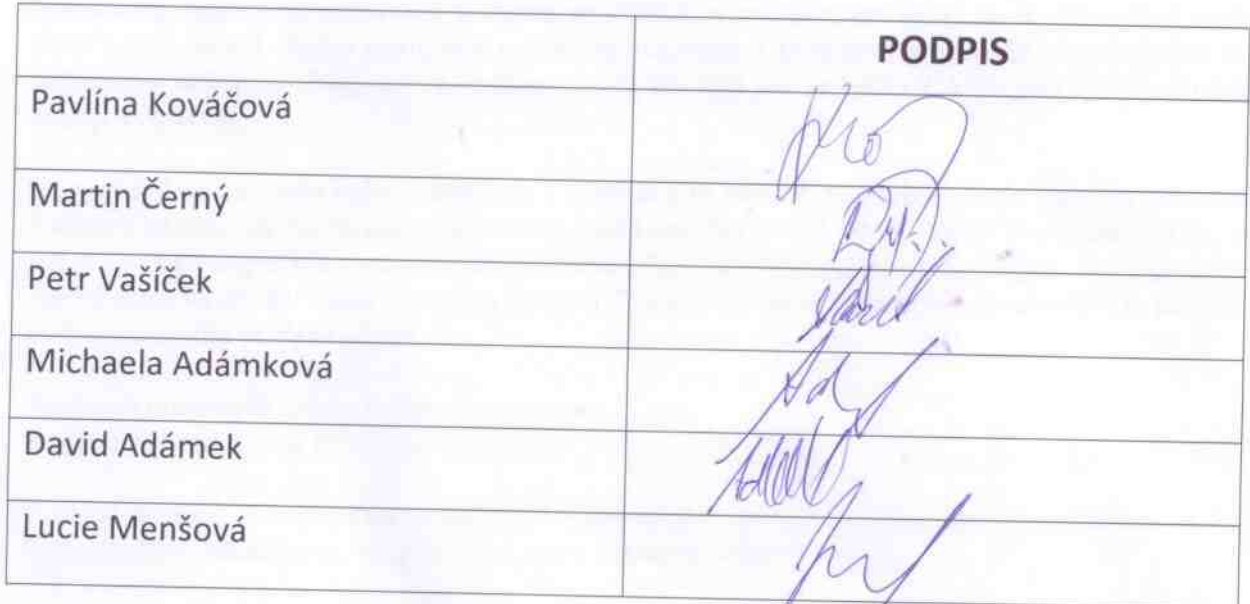 PODPIS
Pavlína Kováčová
Martin Černý
Petr Vašíček
Michaela Adámková
David Adámek
Lucie Menšová